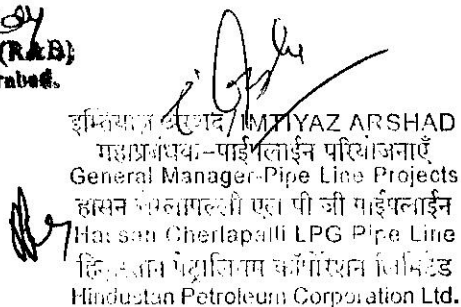 (R&B)
इम्तियाज़ अरशद / IMTIYAZ ARSHAD
महाप्रबंधक-पाईपलाईन परियोजनाएँ
General Manager-Pipe Line Projects
हासन चेरलापल्ली एल पी जी पाईपलाईन
Hassan Cherlapalli LPG Pipe Line
हिन्दुस्तान पेट्रोलियम कॉर्पोरेशन लिमिटेड
Hindustan Petroleum Corporation Ltd.